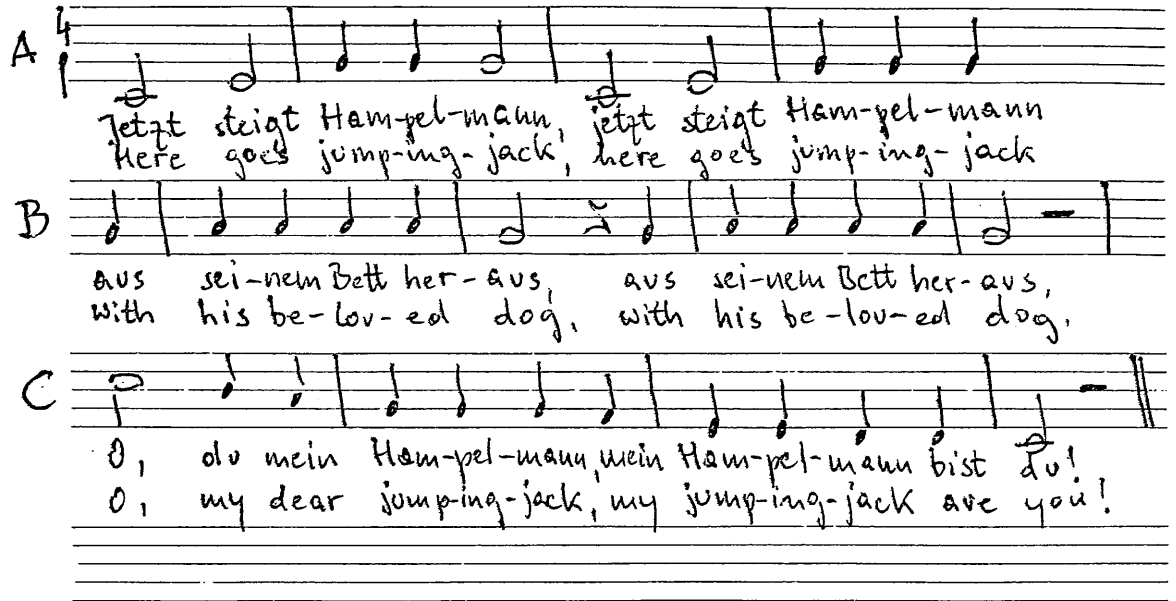 A 4
Jetzt steigt Ham-pel-mann, jetzt steigt Ham-pel-mann
Here goes jump-ing-jack, here goes jump-ing-jack
B
aus sei-nem Bett her-aus, aus sei-nem Bett her-aus,
with his be-lov-ed dog, with his be-lov-ed dog.
C
O, du mein Ham-pel-mann, mein Ham-pel-mann bist du!
O, my dear jump-ing-jack, my jump-ing-jack are you!